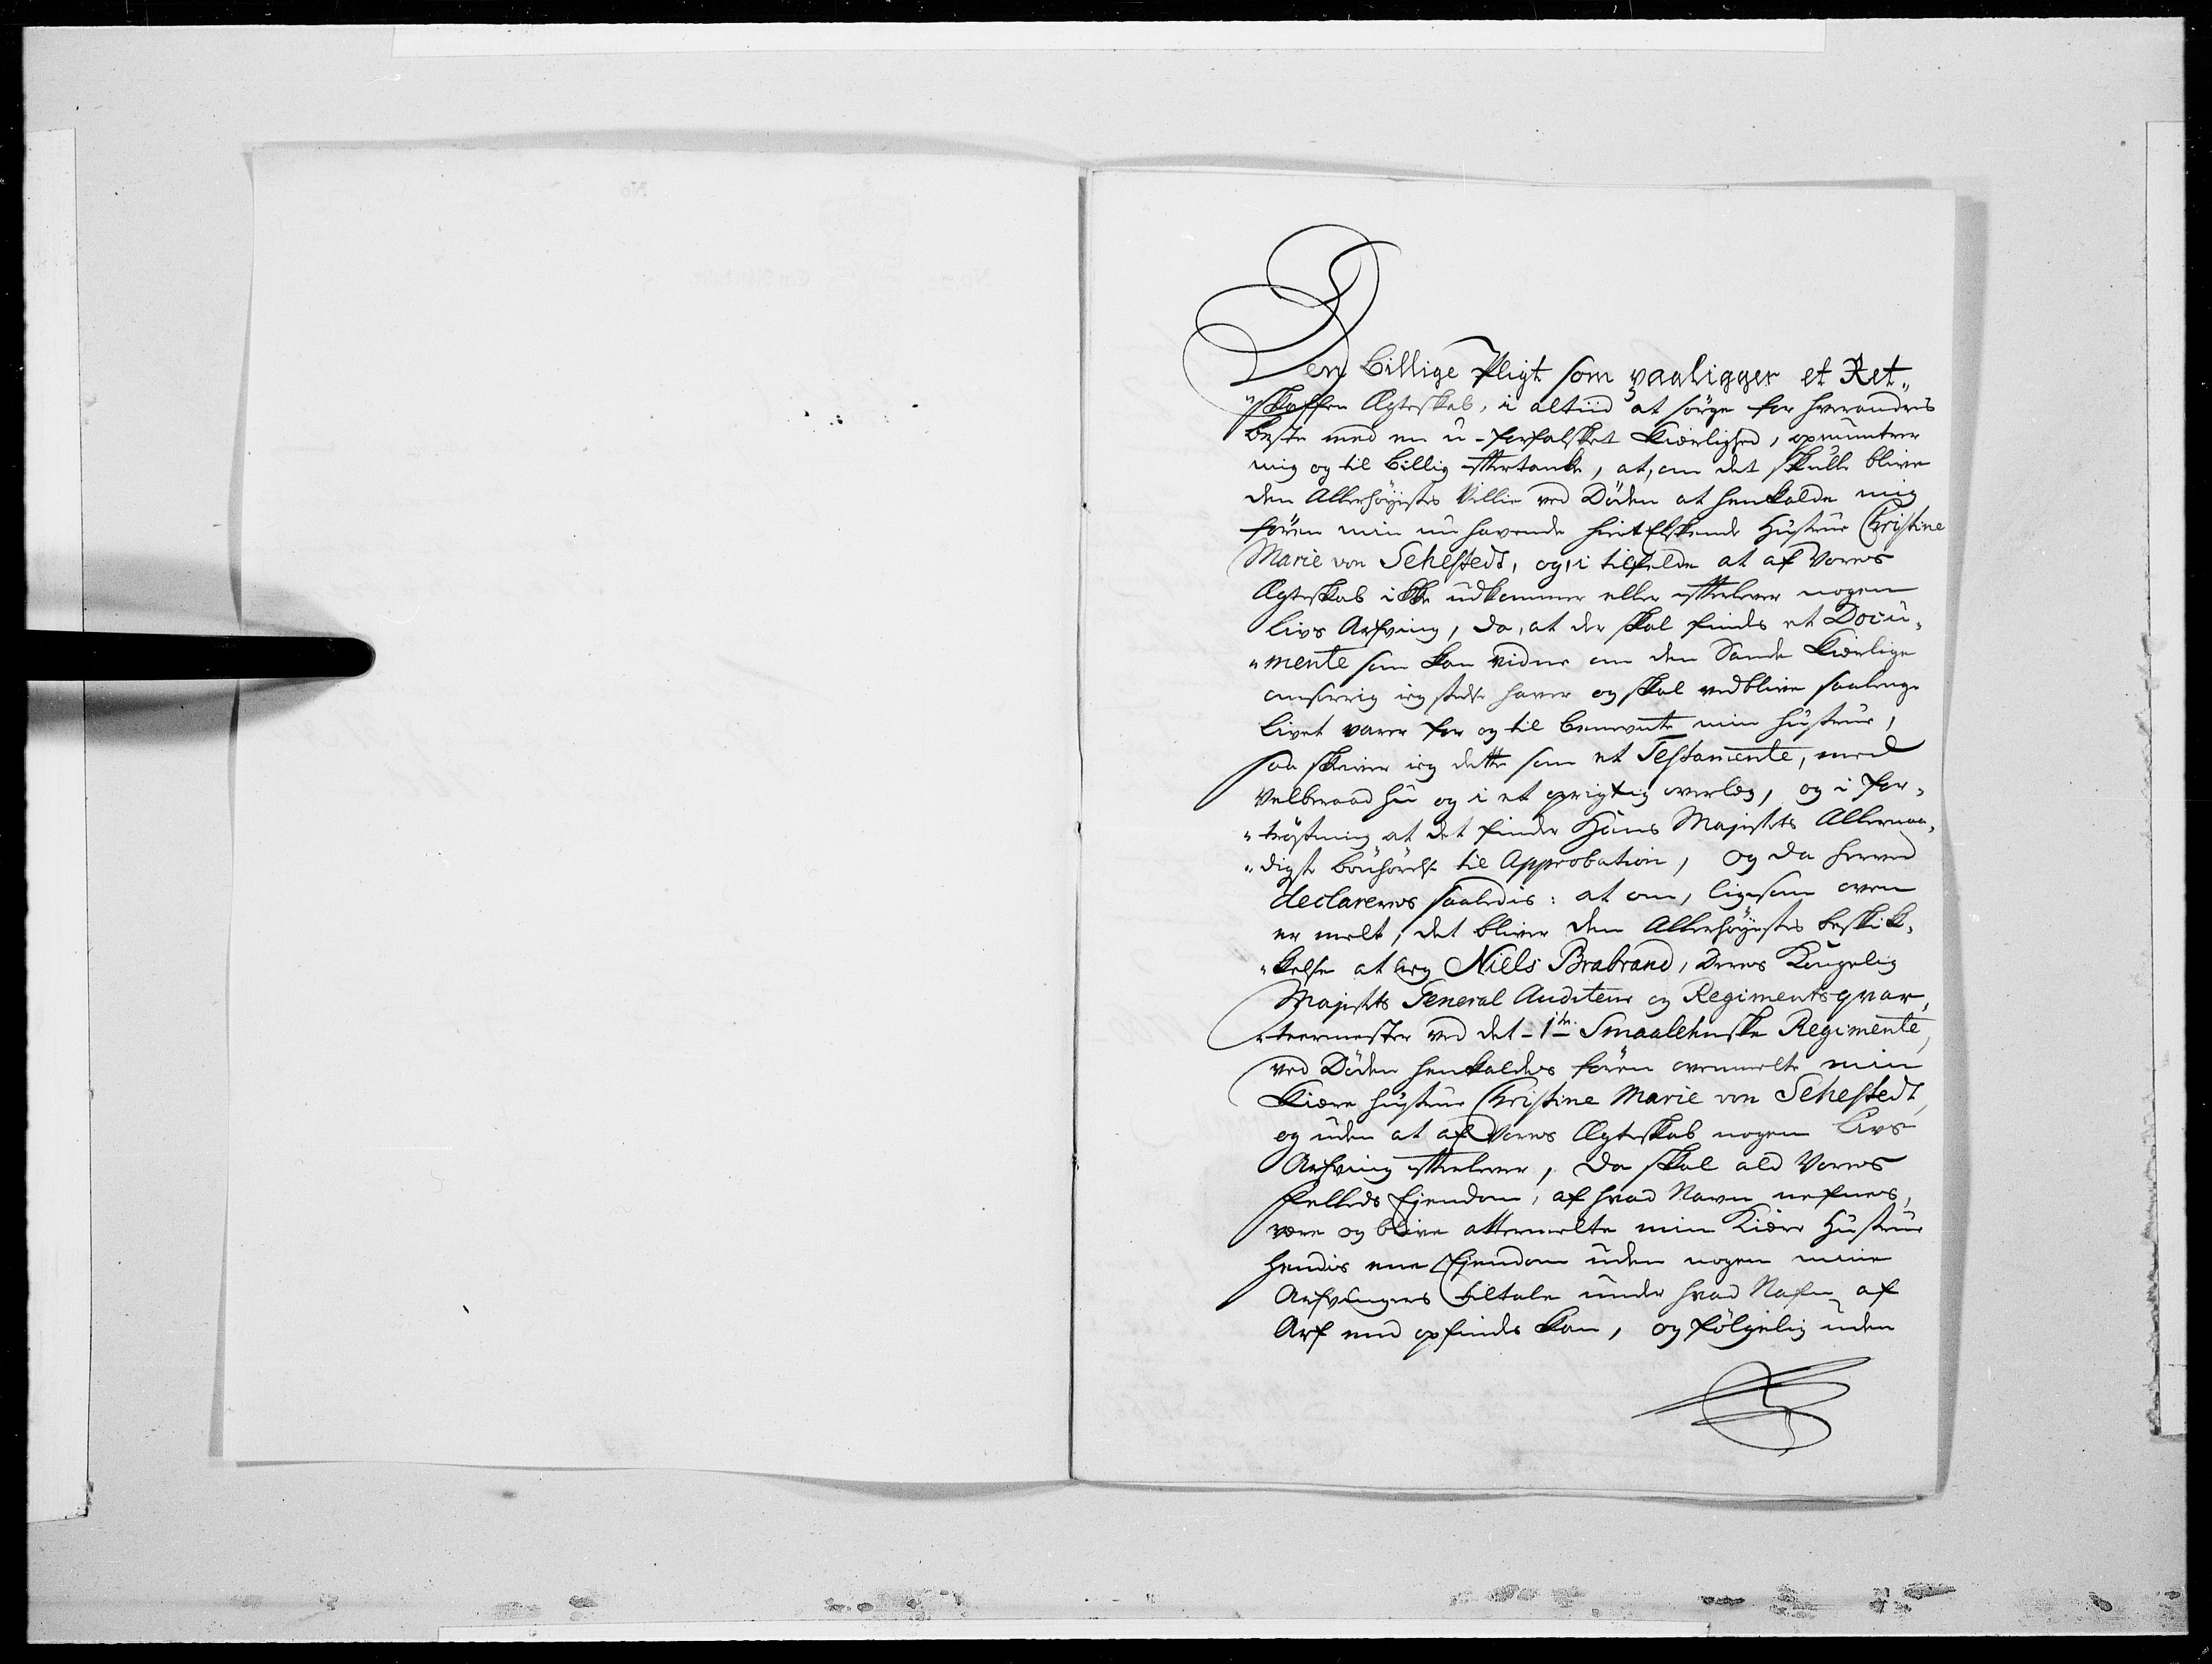 Den billige Pligt som paaligger et Ret-
"skaffen Ægteskab, i altiid at sörge for hverandres
beste med en u-forfalsket Kiærlighed, opmuntrer
mig og til billig eftertanke, at, om det skulle blive
den Allerhöyestes Villie ved Döden at henkalde mig
förend min nu havende hiertElskende Hustrue Christine
Marie von Sehestedt, og, i tilfelde at af Vores
Ægteskab ikke udkommer eller efterlever nogen
Livs Arfving, da, at der skal findes et Docu-
"mente som kan vidne om den Sande Kiærlige
omsorrig ieg stedse haver og skal vedblive saalenge
Livet varer for og til benevnte min Hustrue,
saa skriver ieg dette som et Testamente, med
Velberaad hu og i et oprigtig overlæg, og i for-
"tröstning at det finder Hans Majestets Allernaa-
"digste bönhörelse til Approbation, og da herved
declareres saaledes: at om, ligesom oven
er melt, det bliver den Allerhöyestes beskik-
"kelse at ieg Niels Brabrand, Deres Kongelig
Majestets General Auditeur og Regimentsqvar-
"teermester ved det 1te Smaalehnske Regimente,
ved Döden henkaldes förend ovenmelte min
Kiære Hustrue Christine Marie von Sehestedt,
og uden at af Vores Ægteskab nogen Livs
Arfving efterlever, Da skal ald Vores
Felleds Ejendom, af hvad Navn nefnes,
være og blive oftermelte min Kiære Hustrue
hendes eene Ejendom uden nogen mine
Arfvingers tiltale under hvad Nafn af
Arf end opfindes kan, og fölgelig uden